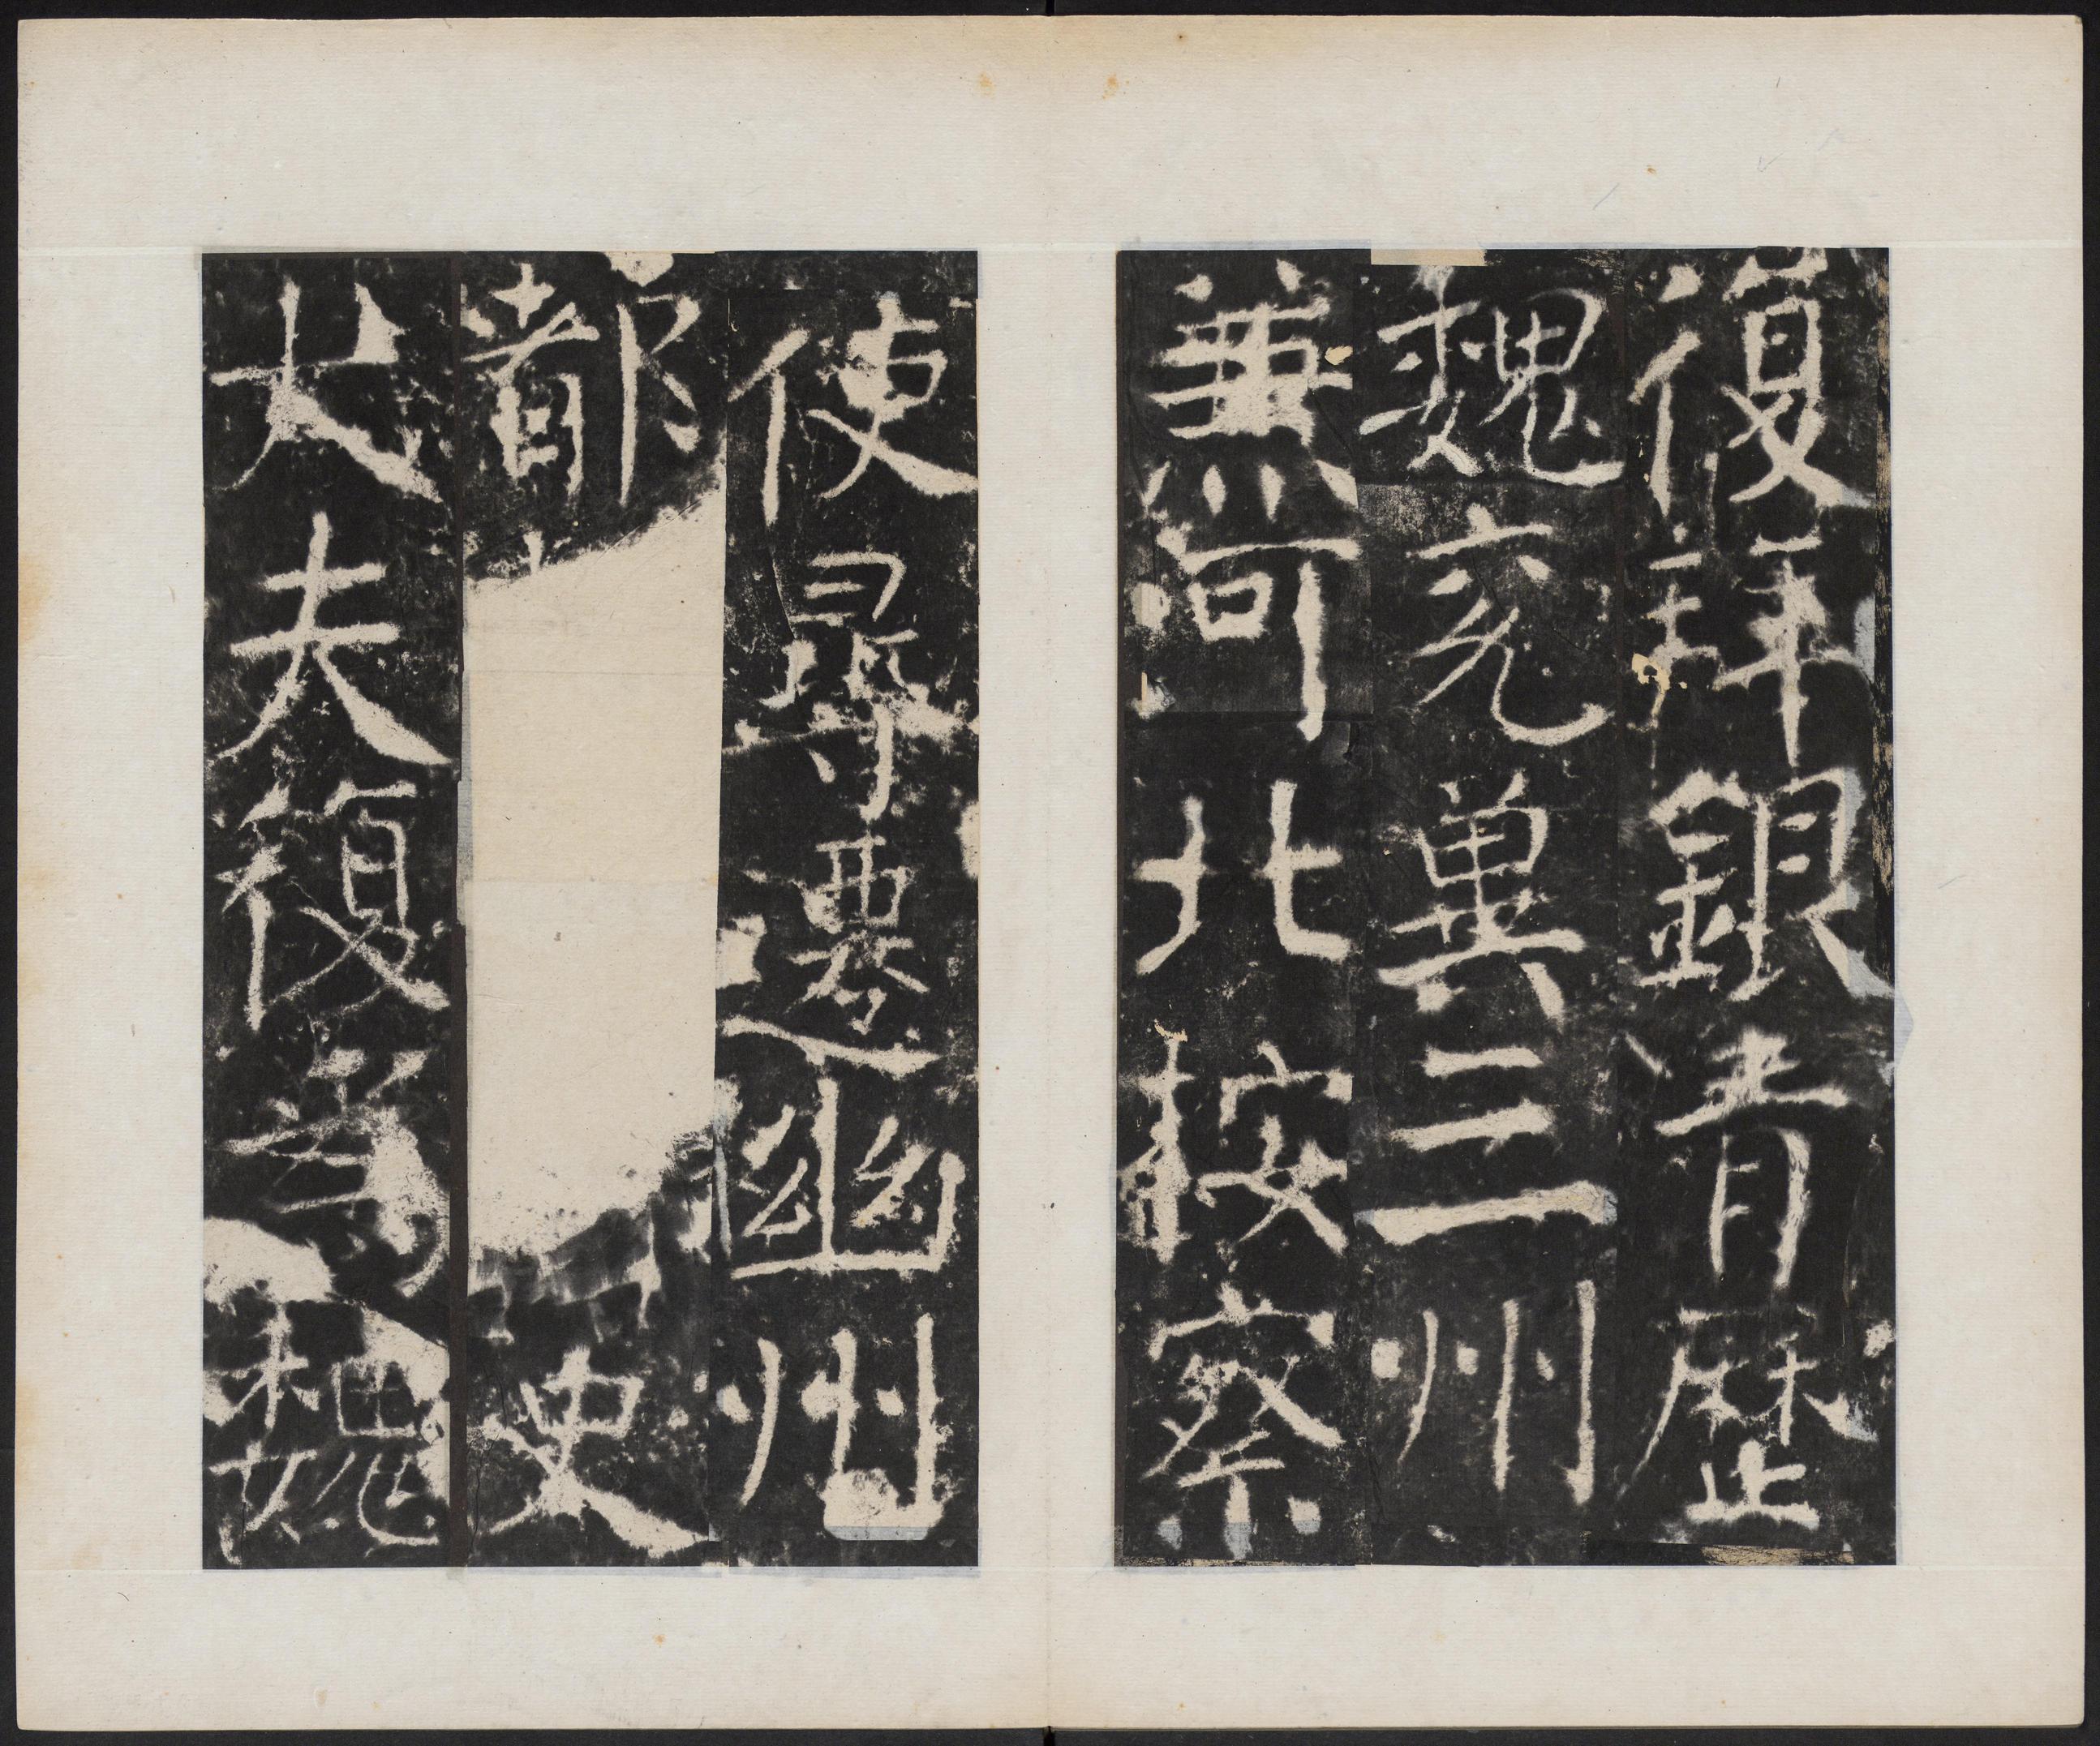 復拜銀青歷
魏兗冀三州
兼河北按察
使尋遷幽州
都史
大夫復為魏